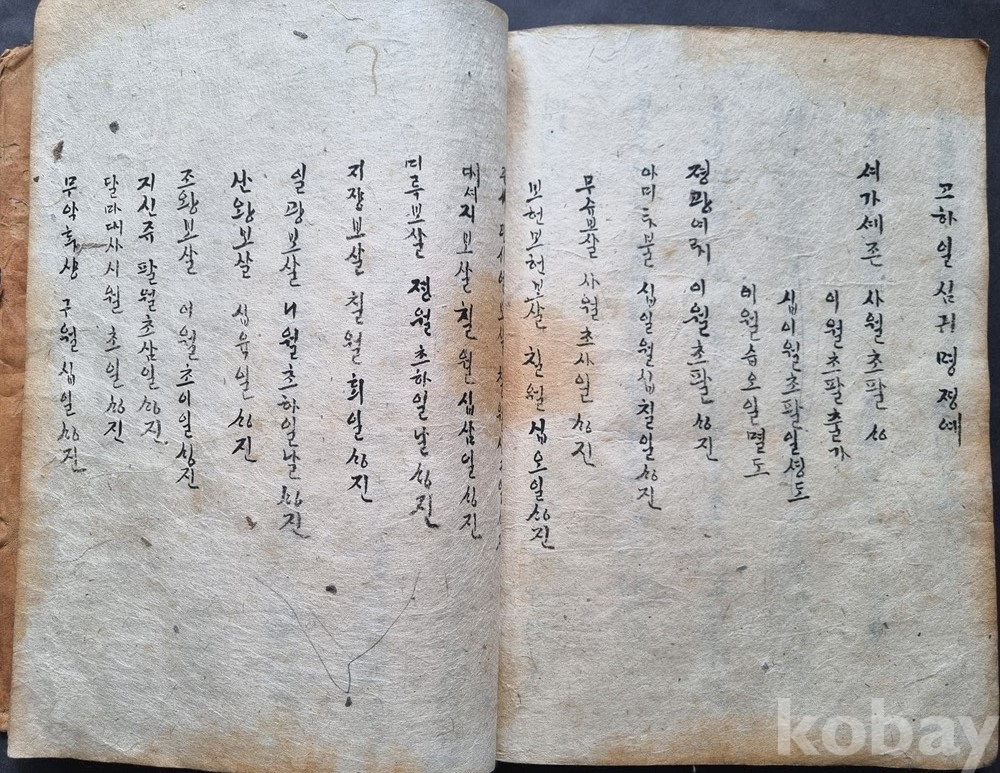 고하일심귀명정예
셔가셰존 사월초팔 싱
이월초팔출가
십이월초팔일셩도
이월습오일멸도
졍광여릐 이월초팔 싱진
아미타불 십일월십칠일싱진
무슈보살 사월초사일 싱진
보현보현보살 칠월십오일싱진
대셰지보살 칠월십삼일싱진
미륵보살 졍월초하일날싱진
지쟝보살 칠월회일싱진
일광보살 너월초하일날싱진
산왕보살 십육일싱진
조왕보살 이월초이일싱진
지신쥬 팔월초삼일싱진
달마대사시월초일싱진
무악화샹 구월십일싱진
kobay